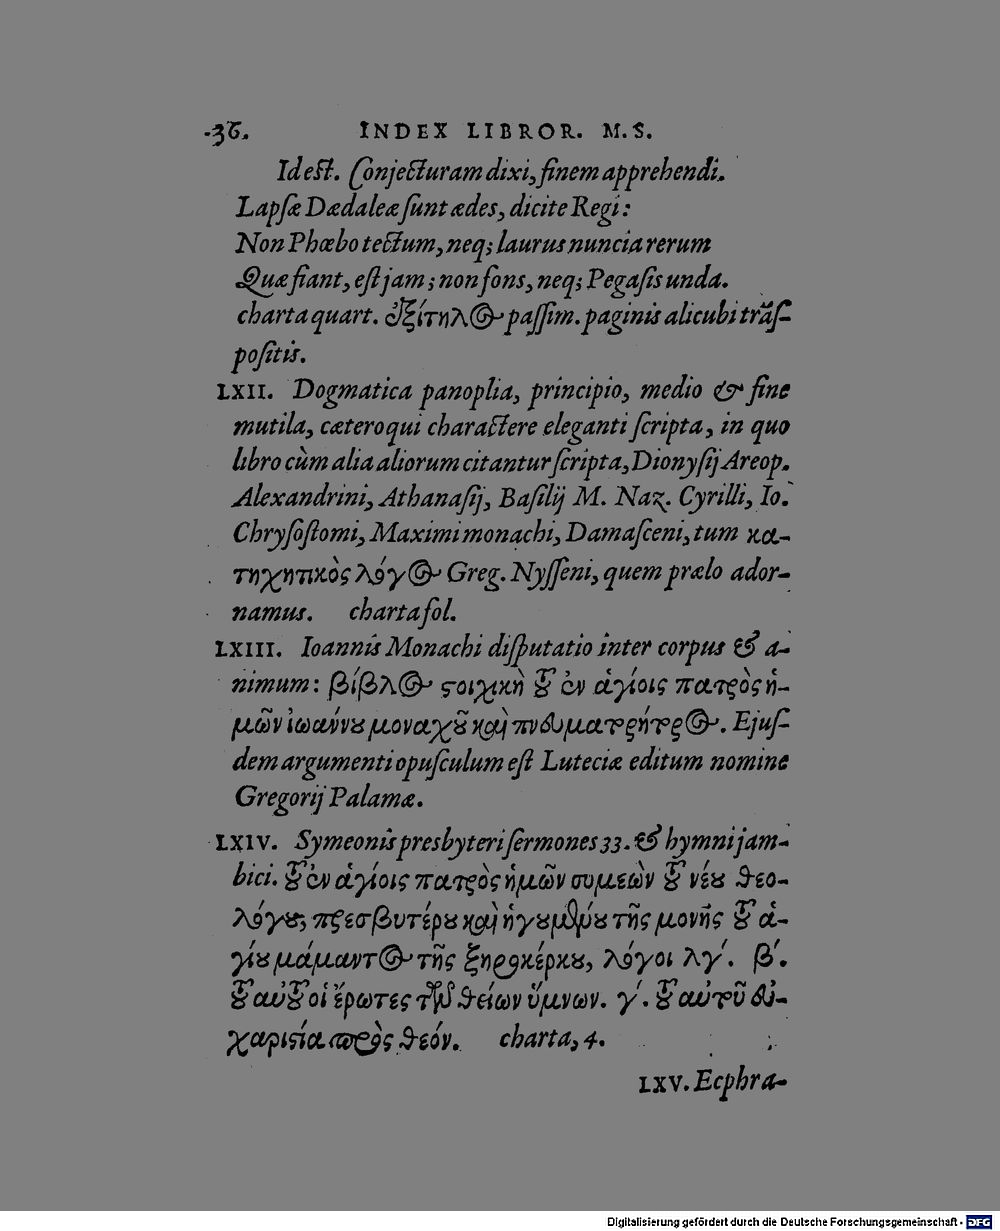 36. INDEX LIBROR. M.S.
Id est. Conjecturam dixi, finem apprehendi.
Lapsæ Dædaleæ sunt ædes, dicite Regi:
Non Phœbo tectum, neq; laurus nuncia rerum
Quæ fiant, est jam; non fons, neq; Pegasis unda.
charta quart. ἐξίτηλος passim. paginis alicubi trãs-
positis.
LXII. Dogmatica panoplia, principio, medio & fine
mutila, cæteroqui charactere eleganti scripta, in quo
libro cùm alia aliorum citantur scripta, Dionysij Areop.
Alexandrini, Athanasij, Basilij M. Naz. Cyrilli, Io.
Chrysostomi, Maximi monachi, Damasceni, tum κα-
τηχητικὸς λόγος Greg. Nysseni, quem prælo ador-
namus. charta fol.
LXIII. Ioannis Monachi disputatio inter corpus & a-
nimum: βίβλος στοιχικὴ τοῦ ἐν ἁγίοις πατρὸς ἡ-
μῶν ἰωάννου μοναχοῦ καὶ πνευματρρήτρος. Ejus-
dem argumenti opusculum est Luteciæ editum nomine
Gregorij Palamæ.
LXIV. Symeonis presbyteri sermones 33. & hymni jam-
bici. τοῦ ἐν ἁγίοις πατρὸς ἡμῶν συμεὼν τοῦ νέου θεο-
λόγου, πρεσβυτέρου καὶ ἡγουμένου τῆς μονῆς τοῦ ἁ-
γίου μάμαντος τῆς ξηροκέρκου, λόγοι λγ΄. β΄.
τοῦ αὐτοῦ οἱ ἔρωτες τῶν θείων ὕμνων. γ΄. τοῦ αὐτοῦ εὐ-
χαριστία πρὸς θεόν. charta, 4.
LXV. Ecphra-
Digitalisierung gefördert durch die Deutsche Forschungsgemeinschaft - DFG